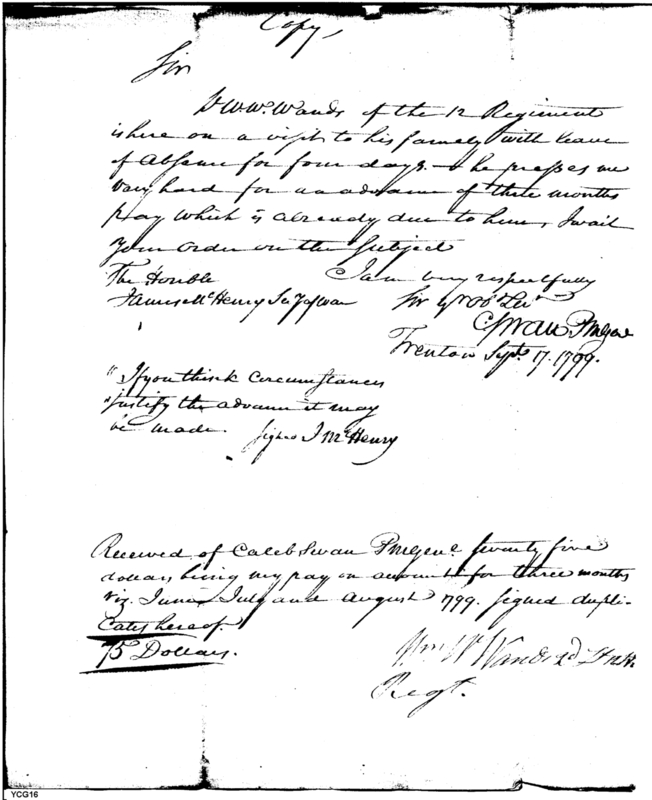 Copy,
Sir
W. W. Wands of the 12 Regiment
is here on a visit to his family with leave
of absence for four days. — he presses me
very hard for an advance of three months
pay which is already due to him, I wait
your order on the subject
The Honble I am very respectfully
James McHenry Secy of War Sir yr Obt Servt
C Swan PMGenl
Trenton Sept. 17. 1799.
"If you think circumstances
"justify the advance it may
be made. signed J McHenry
Received of Caleb Swan PMGenl seventy five
dollars, being my pay on account for three months
viz. June, July and August 1799. signed dupli-
cates hereof.
75 Dollars.
Wm W Wands 2d
Regt.
YCG16